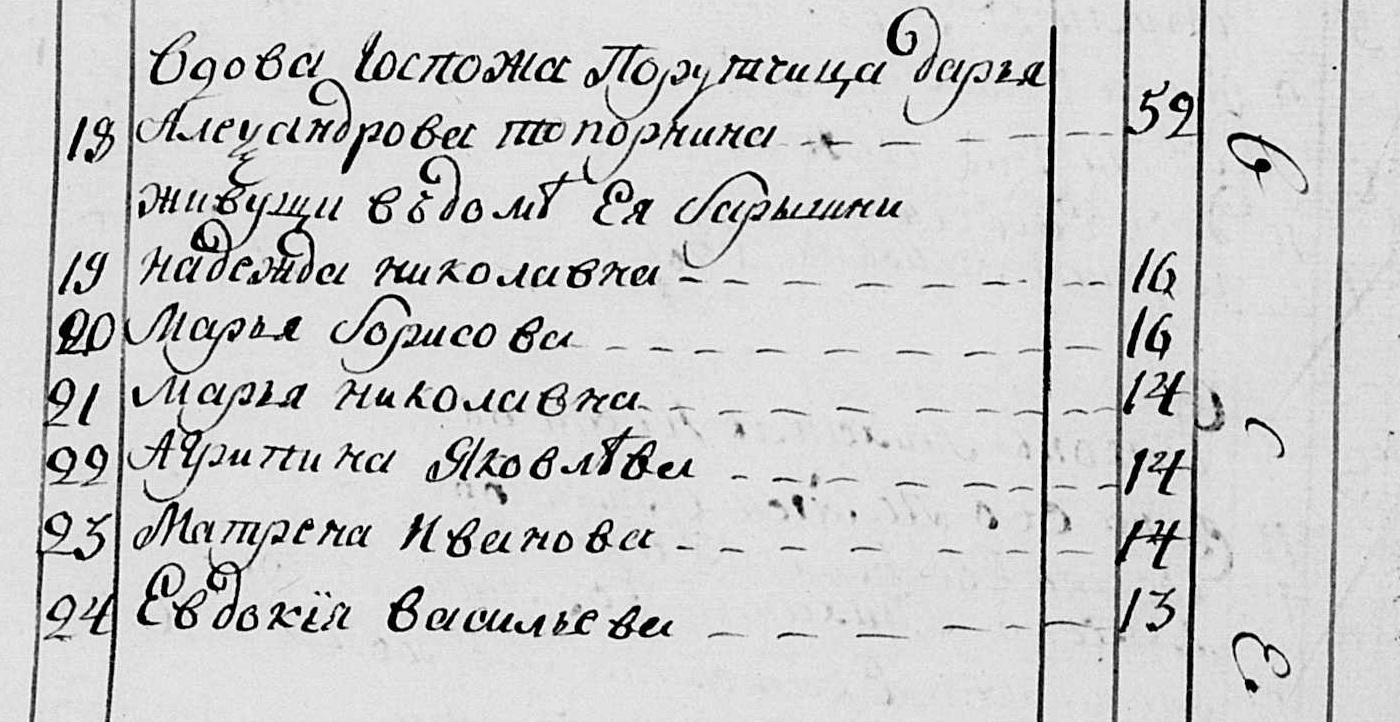 Вдова Госпожа Порутчица дарья 52
18 Алеѯандрова топорнина
живущи въ домѣ Ея барышни
19 надежда николавна 16
20 Марья борисова 16
21 Марья николавна 14
22 Агрипина Яковлѣва 14
23 Матрена Иванова 14
24 Евдокїя васильева 13